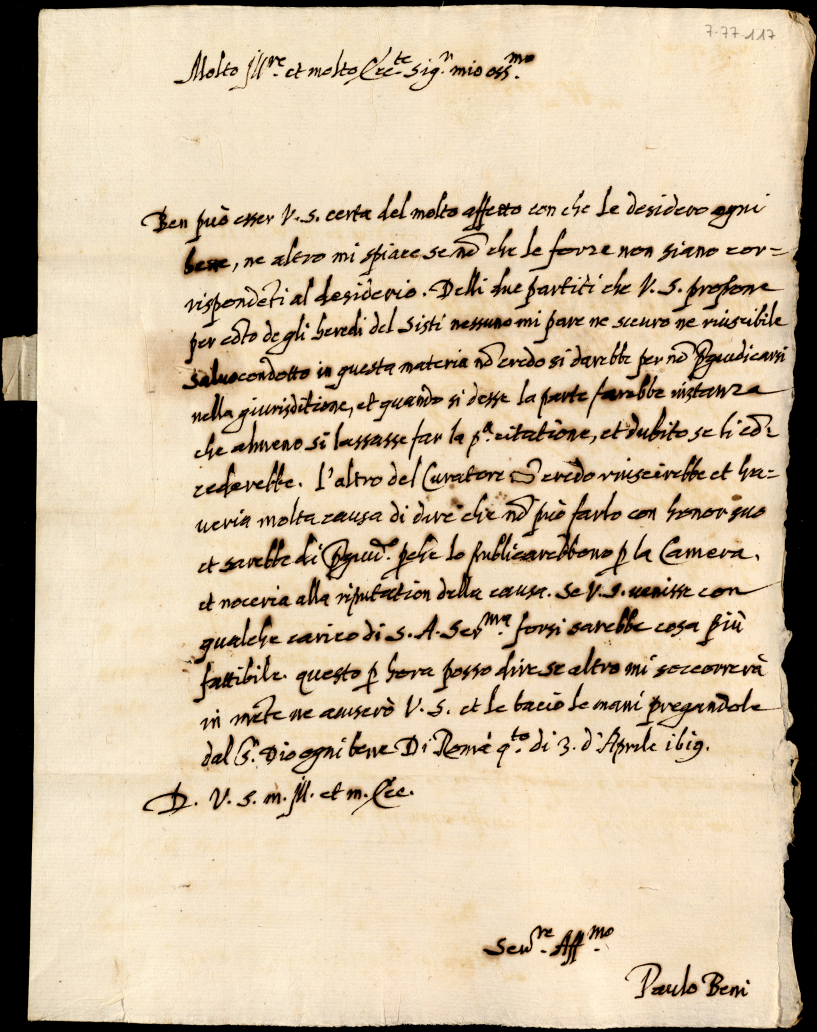 7-77-117
Molto Ill.re et molto Ecc.te Sig.r mio oss.mo
Ben può esser V. S. certa del molto affetto con che le desidero ogni
bene, ne altro mi spiace se nō che le forze non siano cor=
rispondēti al desiderio. Delli due partiti che V. S. propone
per cōto degli heredi del Sisti nessuno mi pare ne securo ne riuscibile
salvocondotto in questa materia nō credo si darebbe per nō p̄giudicarsi
nella giurisditione, et quando si desse la parte farebbe instanza
che almeno si lassasse far la p.a citatione, et dubito se li cō=
cederebbe. L'altro del Curatore nō credo riuscirebbe et ha=
veria molta causa di dire che nō può farlo con honor suo
et sarebbe di p̄giud.o p̄che lo publicarebbono p̱ la Camera,
et noceria alla riputation della causa. Se V. S. venisse con
qualche carico di S. A. Ser.ma forsi sarebbe cosa più
fattibile. questo p̱ hora posso dire se altro mi soccorrerà
in mēte ne aviserò V. S. et le bacio le mani pregandole
dal S.r Dio ogni bene Di Roma q.to di 3. d'Aprile 1619.
D. V. S. m. Ill. et m. Ecc.
Serv.re Aff.mo
Paulo Beni